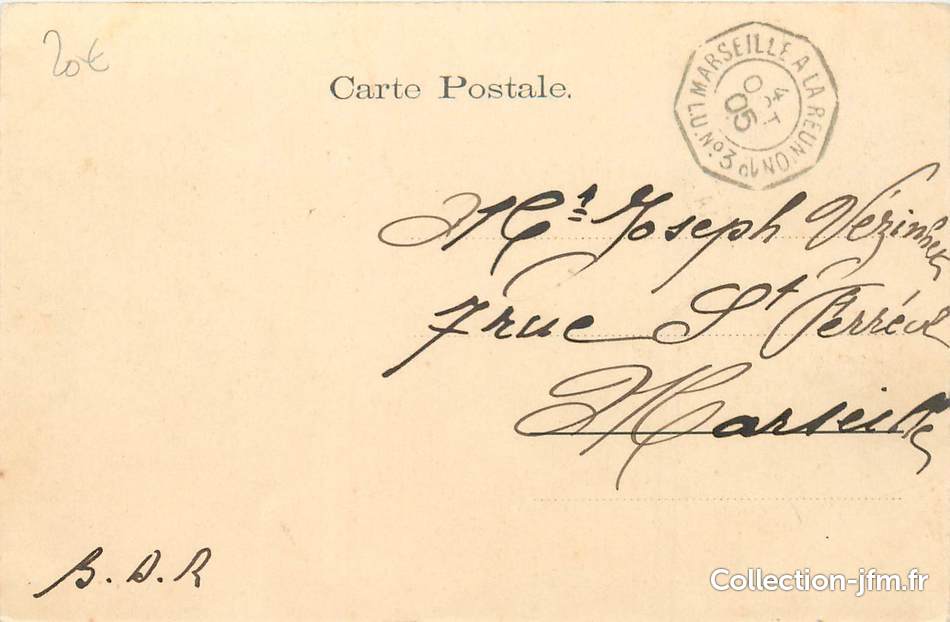 20€
Carte Postale.
LU N MARSEILLE A LA REUNION 1º Nº3
4
OCT
05
Mr. Joseph
7 rue St Ferréol
Marseille
B. D. R
Collection-jfm.fr